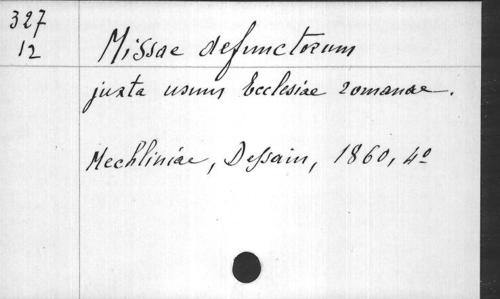 327
12
Missae defunctorum
juxta usum Ecclesiae romanae.
Mechliniae, Dessain, 1860, 4º